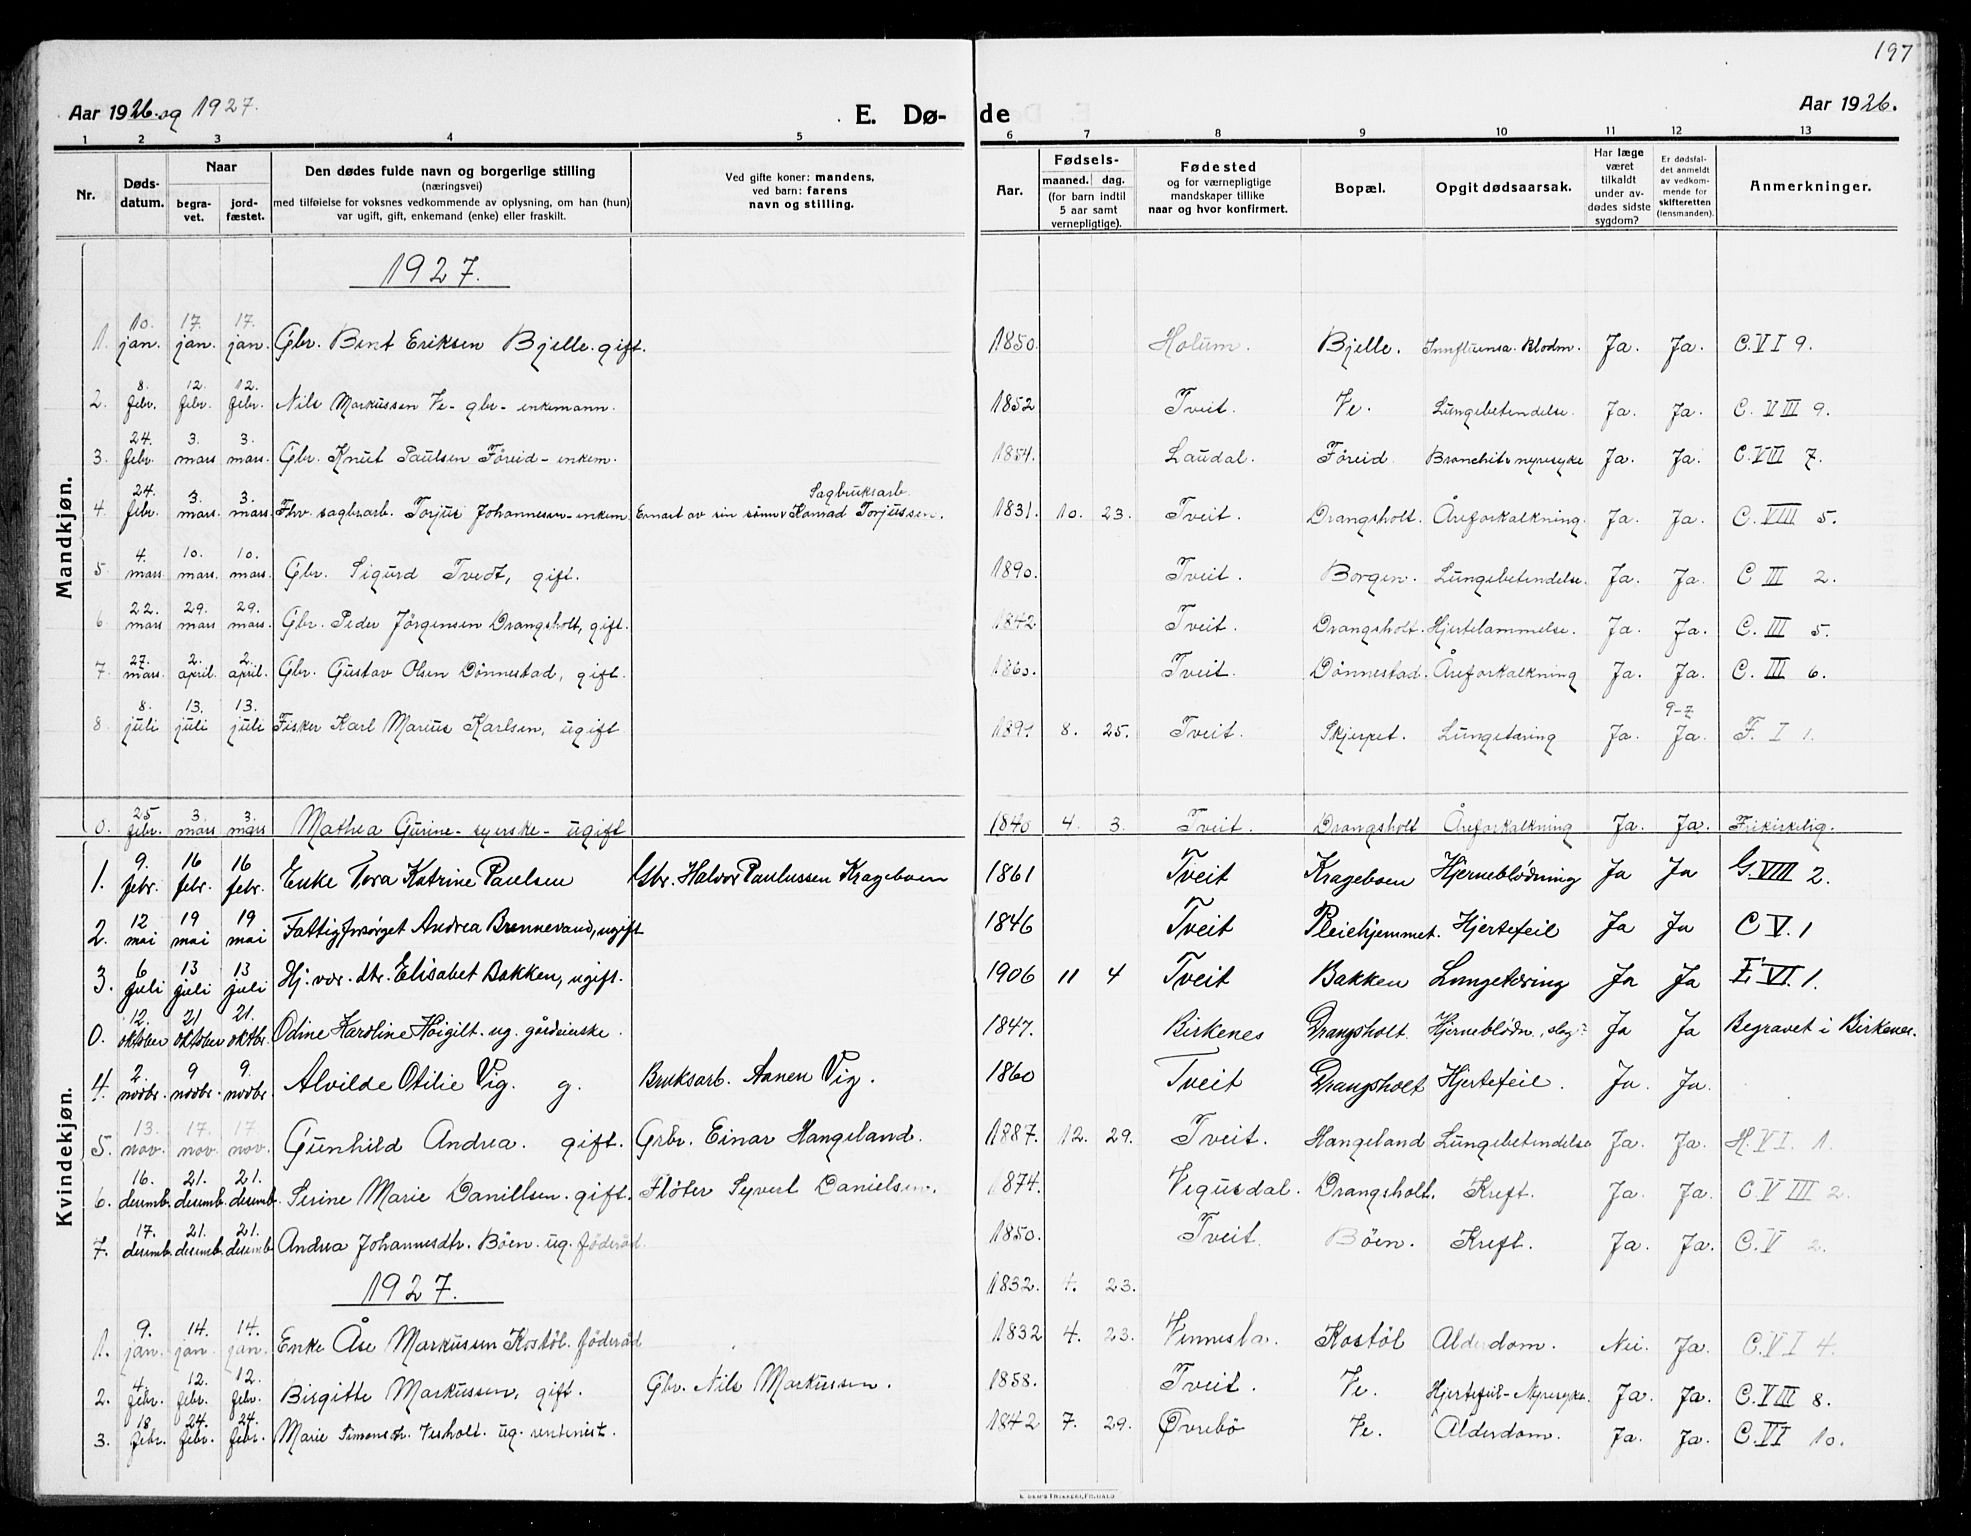 197
Aar 1926. og 1927.
E. Dø-
de
Aar 1926.
1 2 3 4 5 6 7 8 9 10 11 12 13
Nr.
Døds-
datum.
Naar
begra-
vet.
jord-
fæstet.
Den dødes fulde navn og borgerlige stilling
(næringsvei)
med tilføielse for voksnes vedkommende av oplysning, om han (hun)
var ugift, gift, enkemand (enke) eller fraskilt.
Ved gifte koner: mandens,
ved barn: farens
navn og stilling.
Aar.
Fødsels-
maaned. dag.
(for barn indtil
5 aar samt
vernepligtige).
Fødested
og for værnepligtige
mandskaper tillike
naar og hvor konfirmert.
Bopæl.
Opgit dødsaarsak.
Har læge
været
tilkaldt
under av-
dødes sidste
sygdom?
Er dødsfal-
det anmeldt
av vedkom-
mende for
skifteretten
(lensmanden).
Anmerkninger.
Mandkjøn.
1927.
1. 10. jan. 17. jan. 17. jan. Gbr. Bent Eriksen Bjelle. gift. 1850. Holum. Bjelle. Innfluensa. Blodm. Ja. Ja. C. VI 9.
2. 8. febr. 12. febr. 12. febr. Nils Markussen Ve- gbr- enkemann. 1852 Tveit. Ve. Lungebetendelse. Ja. Ja. C. VIII 9.
3. 24. febr. 3. mars 3. mars. Gbr. Knut Paulsen Föreid- enkem. 1854. Laudal. Föreid Bronchit nyresyke Ja. Ja. C. VIII 7.
4. 24. febr. 3. mars. 3. mars. Fhv. sagbrarb. Torjus Johannesen- enkem. Ernært av sin sönn Sagbruksarb. Konrad Torjussen. 1831. 10. 23. Tveit. Drangsholt. Åreforkalkning. Ja. Ja. C. VIII 5.
5. 4. mars 10. mars. 10. mars. Gbr. Sigurd Tvedt, gift. 1890. Tveit. Borgen. Lungebetendelse. Ja. Ja. C III 2.
6. 22. mars 29. mars 29. mars. Gbr. Peder Jörgensen Drangsholt, gift. 1842 Tveit. Drangsholt. Hjertelammelse. Ja. Ja. C. III 5.
7. 27. mars 2. april. 2. april. Gbr. Gustav Olsen Dönnestad, gift. 1860. Tveit. Dönnestad. Åreforkalkning Ja. Ja. C. III 6.
8. 8. juli 13. juli 13. juli Fisker Karl Marius Karlsen, ugift 8. 25. Tveit. Skjerpet. Lungetæring Ja. 9-7 Ja. F. I 1.
0. 25 febr. 3. mars 3. mars Mathea Gurine- syerske- ugift 1840 4. 3. Tveit. Drangsholt Åreforkalkning Ja. Ja. Frikirkelig.
Kvindekjøn.
1. 9. febr. 16 febr. 16 febr. Enke Tora Katrine Paulsen Gbr. Halvor Paulussen Krageboen 1861 Tveit Krageboen Hjerneblödning Ja Ja G. VIII 2.
2. 12 mai 19 mai 19 mai Fattigforsörget Andrea Brennevand, ugift 1846 Tveit Pleiehjemmet. Hjertefeil Ja Ja C V. 1
3. 6 juli 13 juli 13 juli Hj. vær. dtr. Elisabet Bakken, ugift. 1906 11 4 Tveit Bakken Lungetæring Ja Ja E. VI. 1.
0. 12. oktober 21 oktober 21. oktbr. Odine Karoline Höigilt. ug. gårdeierske. 1847. Birkenes Drangsholt. Hjerneblödn., slag? Ja Ja Begravet i Birkenes.
4. 2. novbr. 9 novbr. 9. novbr. Alvilde Otilie Vig. g. Bruksarb. Aanen Vig. 1860 Tveit Drangsholt Hjertefeil. Ja. Ja.
5. 13. nov. 17. nov. 17. nov. Gunhild Andrea. gift. Grbr. Einar Hangeland. 1887. 12. 29. Tveit. Hangeland Lungebetendelse Ja. Ja. H. VI. 1.
6. 16. desemb. 21. desemb. 21. desemb. Serine Marie Danillsen. gift. Flöter Syvert Danielsen. 1874. Vegusdal. Drangsholt. Kreft. Ja. Ja. C. VIII 2.
7. 17. desemb. 21. desemb. 21. desemb. Andrea Johannesdtr. Böen. ug. föderåd. 1850. Tveit. Böen. Kreft. Ja. Ja. C. V 2.
1927. 1832. 4. 23.
1. 9. jan. 14. jan. 14. jan. Enke Åse Markussen Kostöl. föderåd 1832 4. 23. Vennesla. Kostöl Alderdom. Nei. Ja. C. VI 4.
2. 4. febr. 12. febr. 12. febr. Birgitte Markussen, gift. Gbr. Nils Markussen. 1858. Tveit. Ve. Hjertefeil- Nyresyke. Ja. Ja. C. VIII 8.
3. 18 febr. 24. febr. 24. febr. Marie Simonsdtr. Vesholt. ug. rentenist. 1842 7. 29. Övrebö Ve. Alderdom. Ja. Ja. C. VI 10.